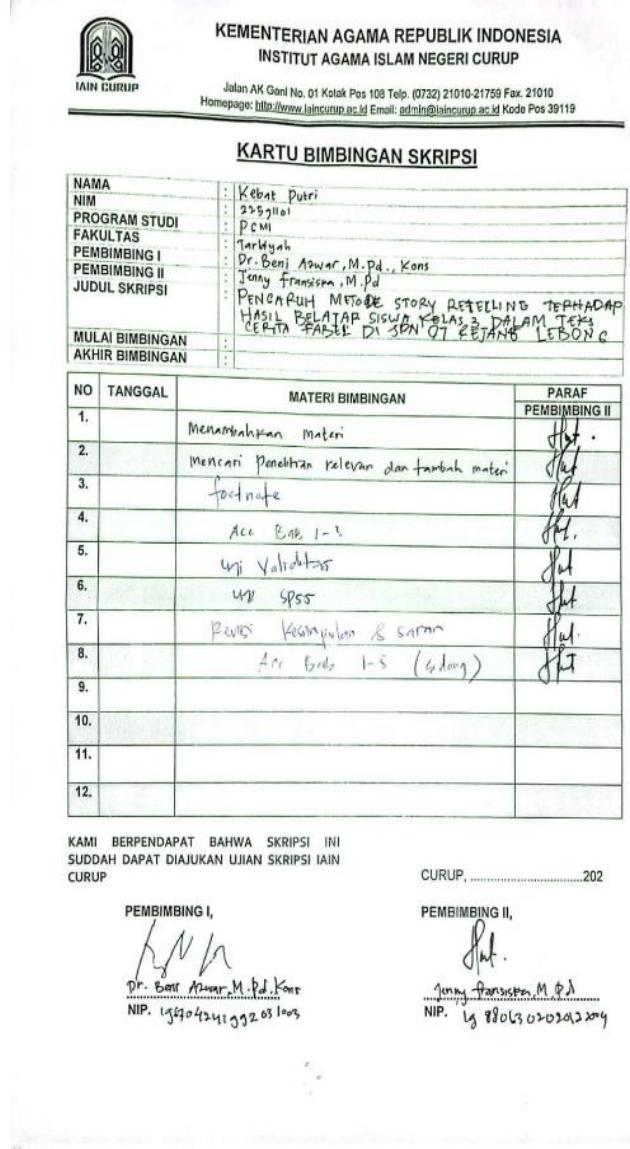 KEMENTERIAN AGAMA REPUBLIK INDONESIA
INSTITUT AGAMA ISLAM NEGERI CURUP
IAIN CURUP
Jalan AK Gani No. 01 Kotak Pos 108 Telp. (0732) 21010-21759 Fax. 21010
Homepage: http://www.iaincurup.ac.id Email: admin@iaincurup.ac.id Kode Pos 39119
KARTU BIMBINGAN SKRIPSI
NAMA : Kebat Putri
NIM : 22591101
PROGRAM STUDI : PGMI
FAKULTAS : Tarbiyah
PEMBIMBING I : Dr. Beni Azwar, M.Pd., Kons
PEMBIMBING II : Jenny Fransiska, M.Pd
JUDUL SKRIPSI : PENGARUH METODE STORY RETELLING TERHADAP
HASIL BELAJAR SISWA KELAS 3 DALAM TEKS
CERITA FABEL DI SDN 07 REJANG LEBONG
MULAI BIMBINGAN :
AKHIR BIMBINGAN :
NO TANGGAL MATERI BIMBINGAN PARAF
PEMBIMBING II
1. Menambahkan materi
2. Mencari Penelitian relevan dan tambah materi
3. footnote
4. Acc Bab 1-3
5. uji Validitas
6. uji SPSS
7. Revisi Kesimpulan & saran
8. Acc Bab 1-5 (sidang)
9.
10.
11.
12.
KAMI BERPENDAPAT BAHWA SKRIPSI INI
SUDDAH DAPAT DIAJUKAN UJIAN SKRIPSI IAIN
CURUP
CURUP, ..............................202
PEMBIMBING I, PEMBIMBING II,
Dr. Beni Azwar, M.Pd. Kons Jenny fransiska, M Pd
NIP. NIP.